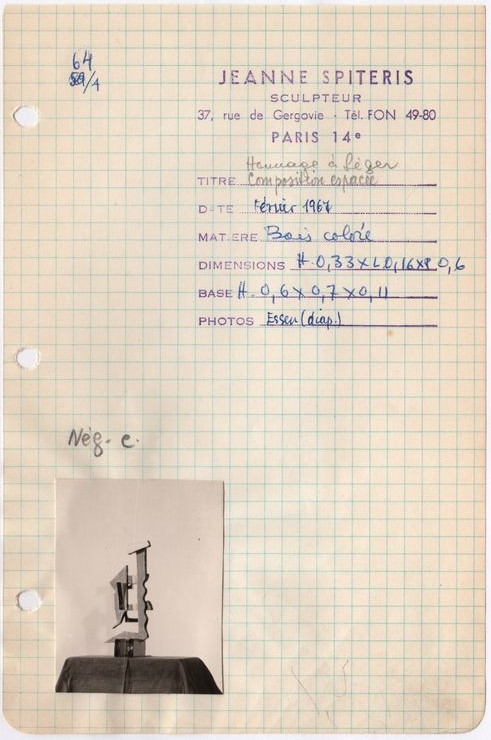 64
59/1
JEANNE SPITERIS
SCULPTEUR
37, rue de Gergovie - Tél. FON 49-80
PARIS 14e
Hommage à Léger
TITRE Composition espacée
DATE Février 1967
MATIERE Bois colorié
DIMENSIONS H. 0,33 X L 0,16 X P 0,6
BASE H. 0,6 X 0,7 X 0,11
PHOTOS Essen (diap.)
Nég. c.